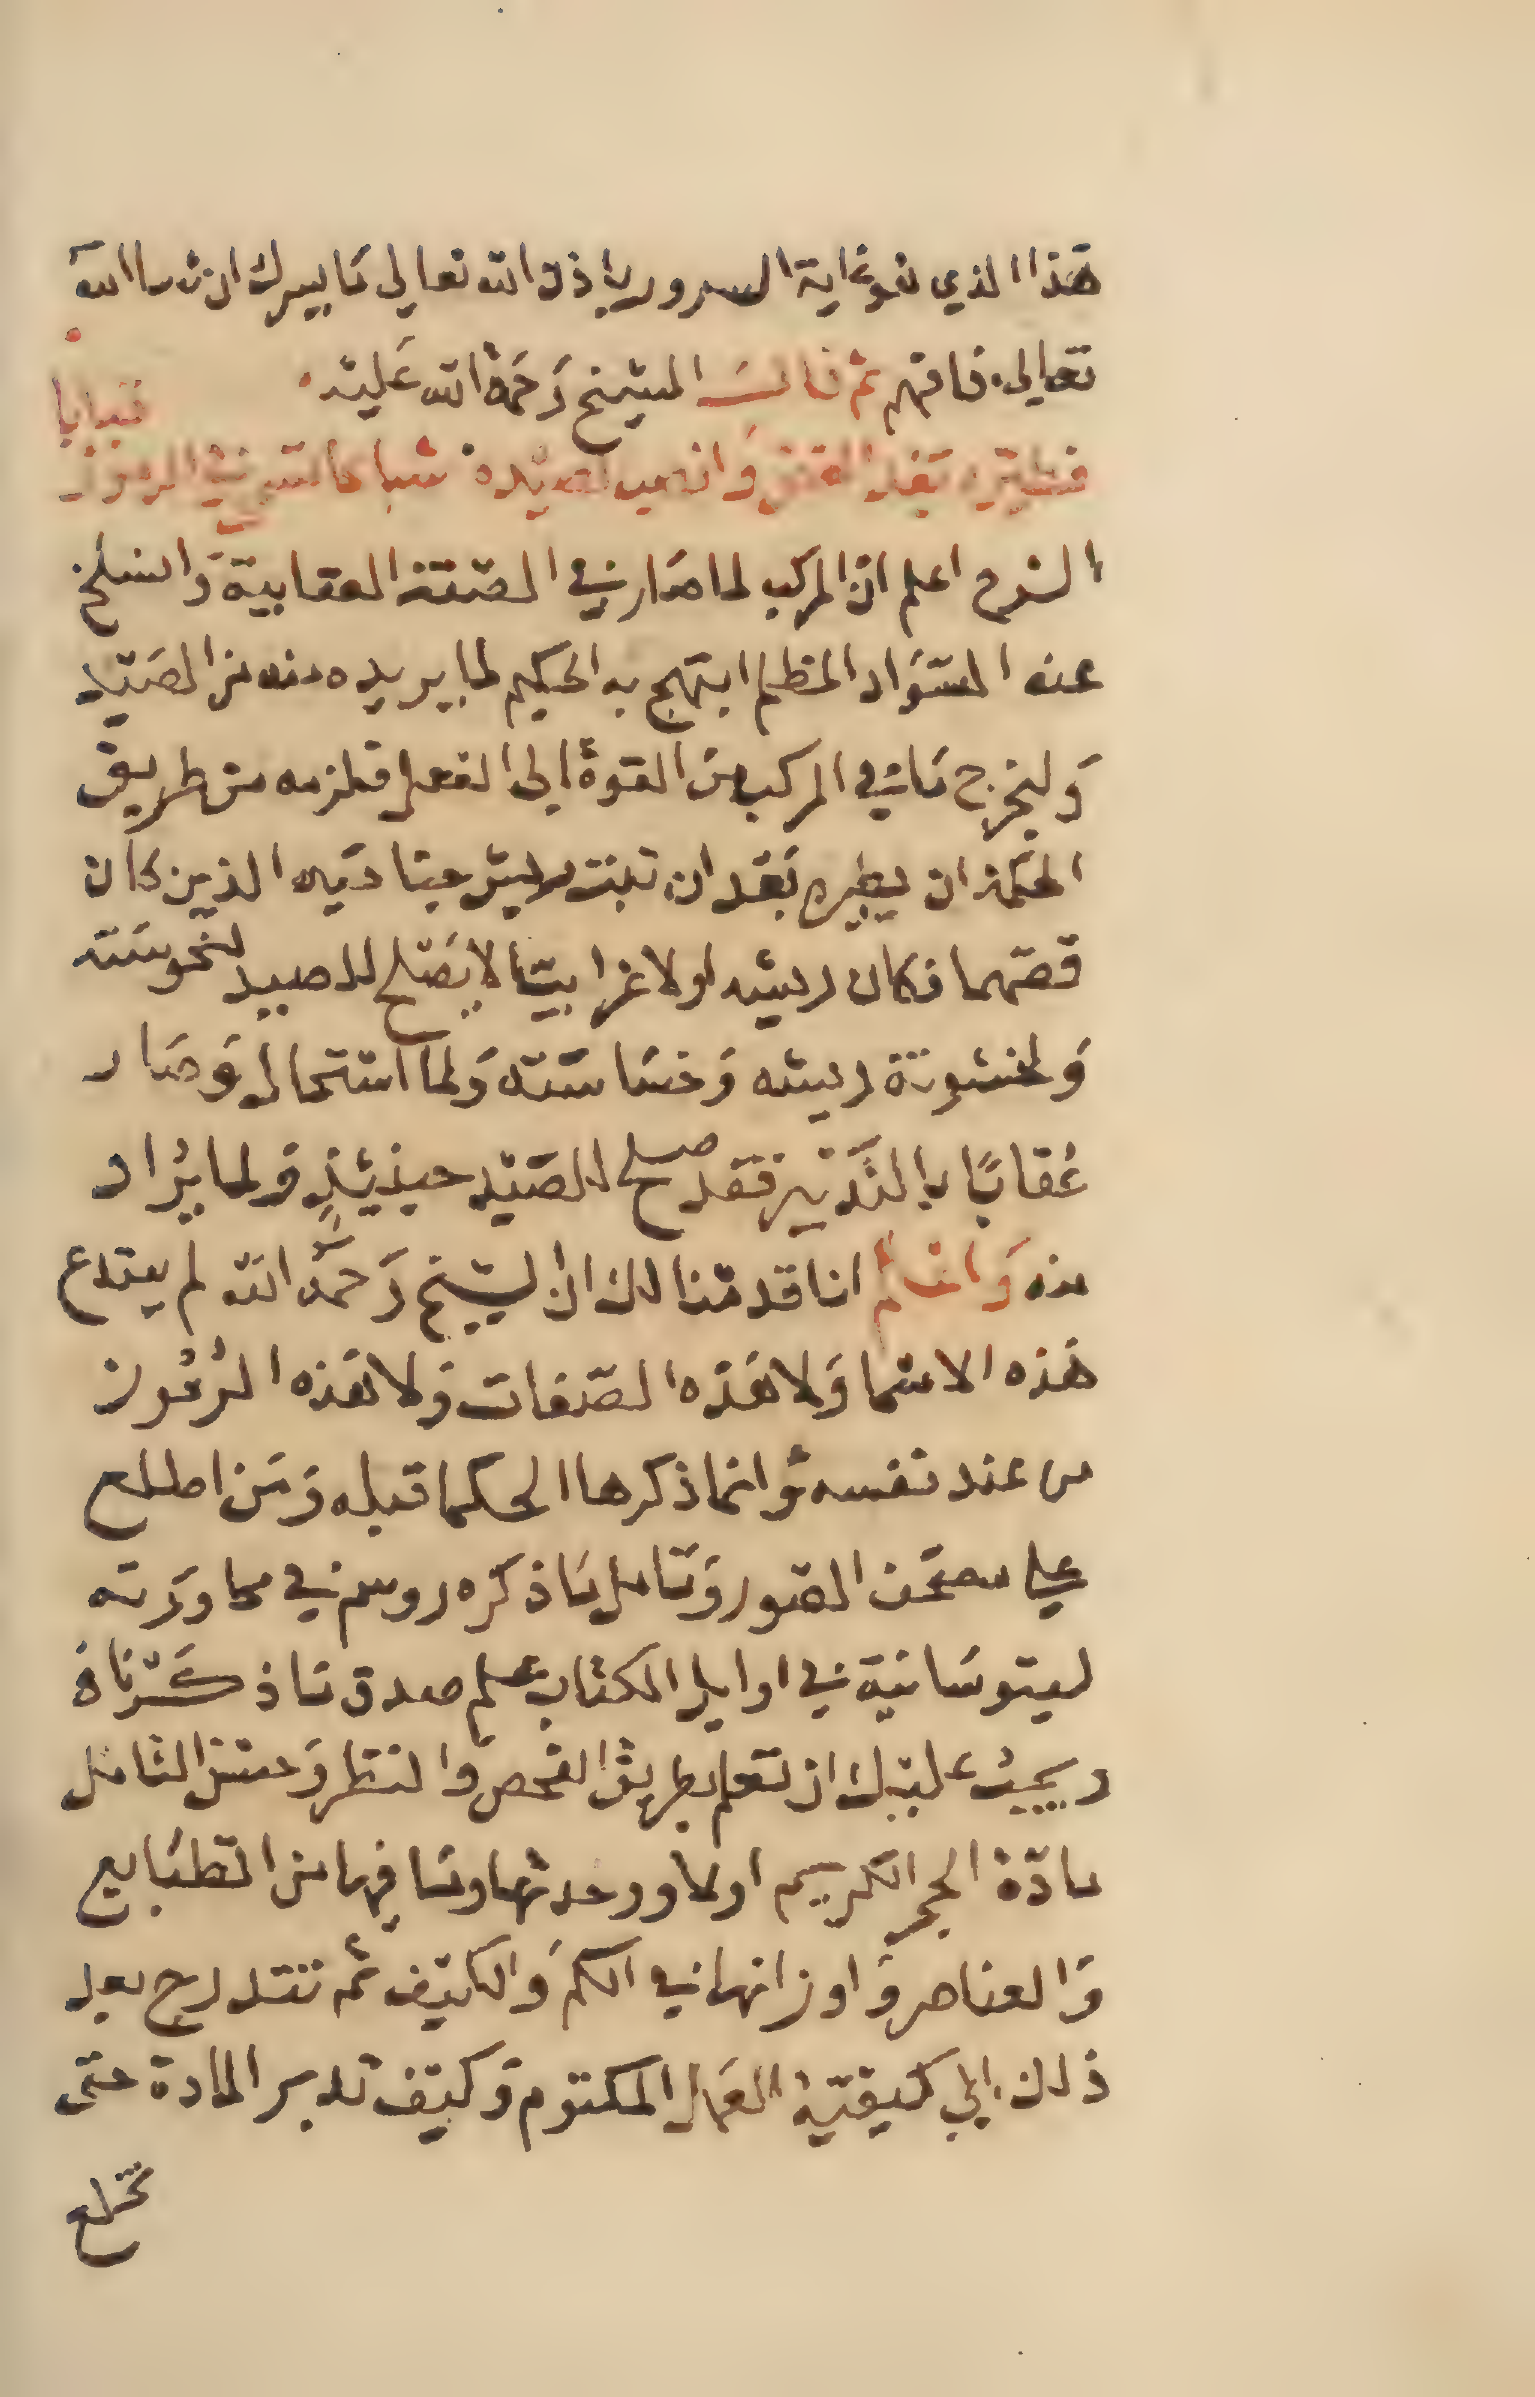 هذا الذي هو غاية السرور باذن الله تعالى ما يسرك ان شا الله
تعالى فافهم ثم قال الشيخ رحمة الله عليه
فطيره بعد القص وانصب لصيده شباكا لتسري في الرموز
الشرح اعلم ان المركب لما صار في الصفة العقابية وانسلخ
عنه السواد المظلم ابتهج به الحكيم لما يريده منه من الصيد
وليخرج ما في المركب من القوة الى الفعل فلزمه من طريق
الحكمة ان يطيره بعد ان نبت ريش جناحيه الذين كان
قصهما فكان ريشه اولا غرابيا لا يصلح للصيد لنحوسته
ولخشونة ريشه وخساسته ولما استحال وصار
عقابًا بالتدبير فقد صلح للصيد حينئذٍ ولما يراد
منه واعلم انا قدمنا لك ان الشيخ رحمه الله لم يبتدع
هذه الاسما ولا هذه الصفات ولا هذه الرموز
من عند نفسه وانما ذكرها الحكما قبله ومن اطلع
على مصحف الصور وتامل ما ذكره روسم في محاورته
لتيوسانية في اوايل الكتاب علم صدق ما ذكرناه
ويجب عليك ان تعلم بطريق الفحص والنظر وحسن التامل
مادة الحجر الكريم اولا ووحدتها وما فيها من الطبايع
والعناصر واوزانها في الكم والكيف ثم تتدرج بعد
ذلك الى كيفية العمل المكتوم وكيف تدبر المادة حتى
تخلع